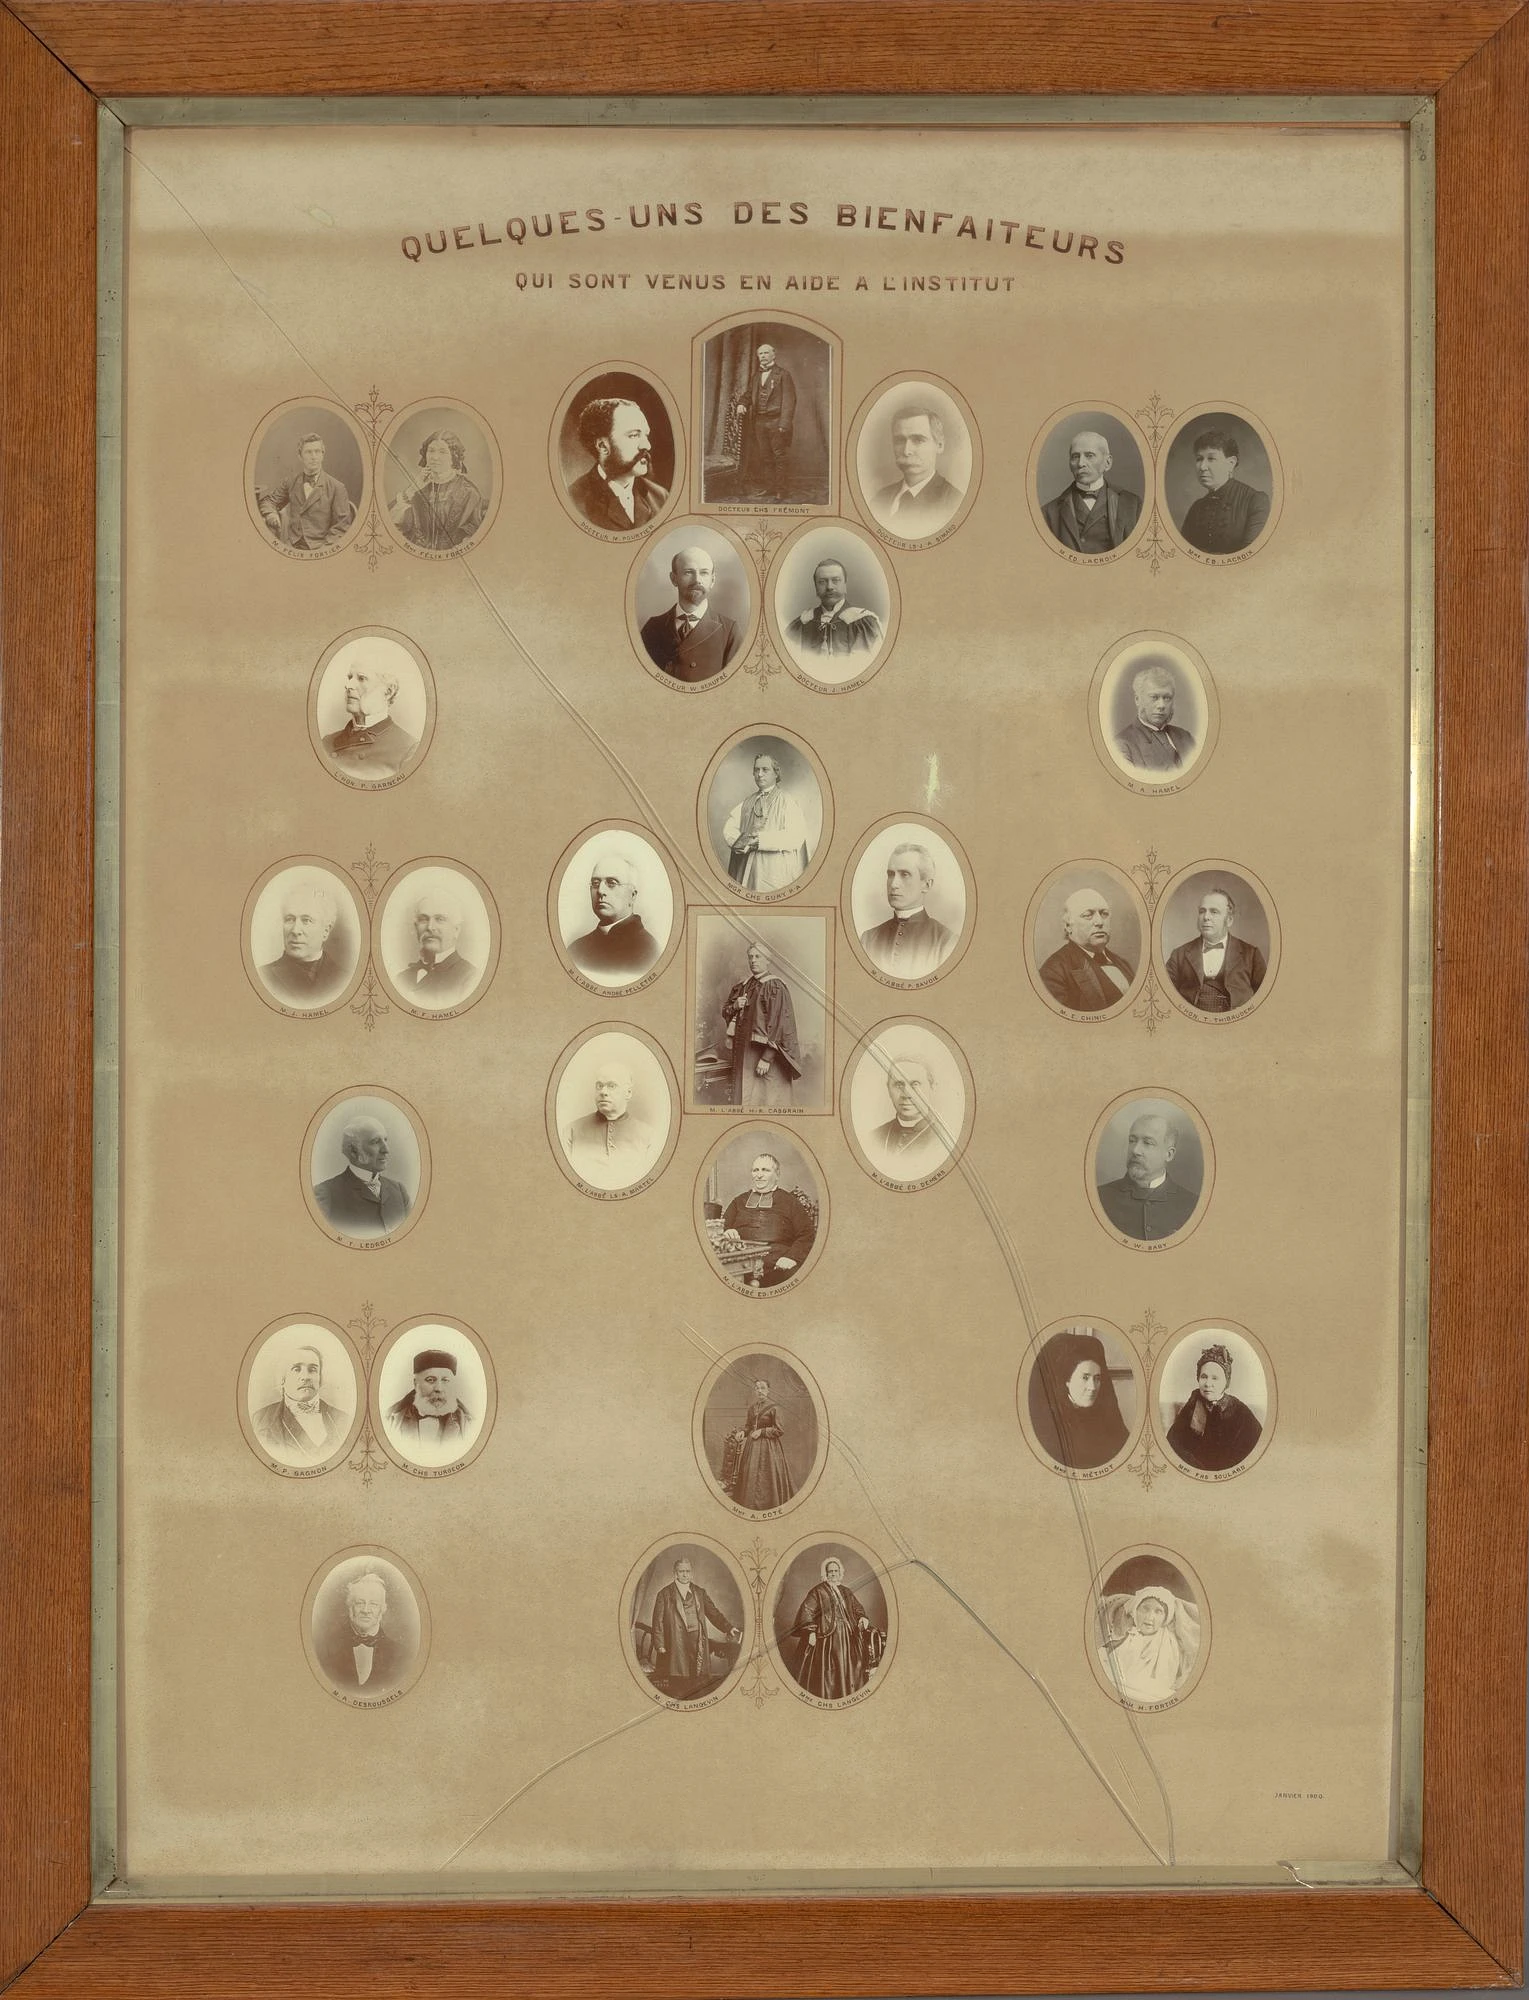 QUELQUES-UNS DES BIENFAITEURS
QUI SONT VENUS EN AIDE A L'INSTITUT
M. FÉLIX FORTIER
Mme FÉLIX FORTIER
DOCTEUR M. POURTIER
DOCTEUR CHS FRÉMONT
DOCTEUR LS-J. A. SIMARD
M. ED. LACROIX
Mme ED. LACROIX
DOCTEUR W.
DOCTEUR J. HAMEL
L'HON. P. GARNEAU
M. A. HAMEL
MGR CHS GUAY P.A
M. J. HAMEL
M. F. HAMEL
M. L'ABBÉ ANDRÉ PELLETIER
M. L'ABBÉ P. SAVOIE
M. E. CHINIC
L'HON. T. THIBAUDEAU
M. L'ABBÉ H.-R. CASGRAIN
M. L'ABBÉ LS-A. MARTEL
M. L'ABBÉ ED. DEMERS
M. T. LEDROIT
M. W. BABY
M. L'ABBÉ ED. FAUCHER
M. P. GAGNON
M. CHS TURGEON
Mme A. COTÉ
Mme E. MÉTHOT
Mme FRS SOULARD
M. A. DESROUSSELS
M. CHS LANGEVIN
Mme CHS LANGEVIN
H. FORTIER
JANVIER 1900.